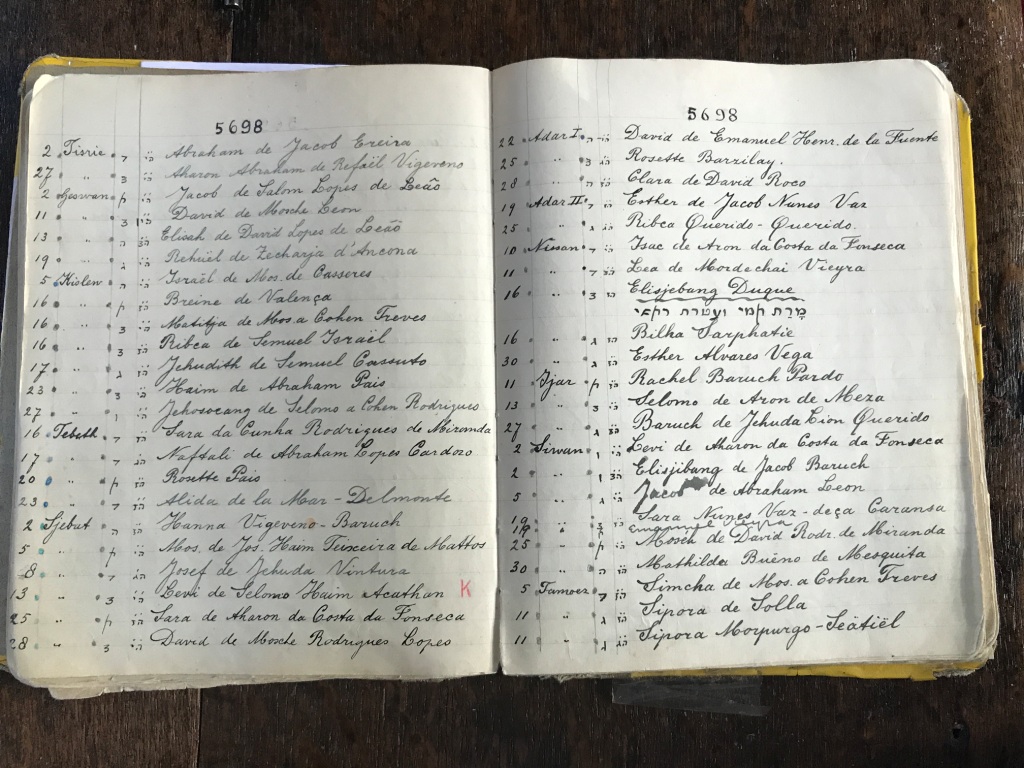 5698
2 Tisrie ד Abraham de Jacob Ereira
27 " " Aharon Abraham de Refaël Vigeveno
2 Heswan Jacob de Salom Lopes de Leaõ
11 " " David de Mosche Leon
13 " " Elisah de David Lopes de Leaõ
19 " " Rehuel de Zecharja d'Ancona
5 Kislew Israël de Mos. de Casseres
16 " " Breine de Valença
16 " " Matitja de Mos. a Cohen Treves
16 " " Ribca de Semuel Israël
17 " " Jehudith de Semuel Cassuto
23 " " Haim de Abraham Pais
27 " " Jehoseang de Selomo a Cohen Rodrigues
16 Tebeth Sara da Cunha Rodrigues de Miranda
17 " " Naftali de Abraham Lopes Cardozo
20 " " Rosette Pais
23 " " Alida de la Mar - Delmonte
2 Sjebat Hanna Vigeveno - Baruch
5 " " Mos. de Jos. Haim Teixeira de Mattos
8 " " Josef de Jehuda Vintura
13 " " Levi de Selomo Haim Acathan K
25 " " Sara de Aharon da Costa da Fonseca
28 " " David de Mosche Rodrigues Lopes
5698
22 Adar I David de Emanuel Henr. de la Fuente
25 " " Rosette Barzilay.
28 " " Clara de David Roco
19 Adar II Esther de Jacob Nunes Vaz
25 " " Ribca Querido - Querido.
10 Nissan Isac de Aron da Costa da Fonseca
11 " " Lea de Mordechai Vieyra
16 " " Elisjebang Duque
מרת
16 " " Bilha Sarphatie
30 " " Esther Alvares Vega
11 Ijar Rachel Baruch Pardo
13 " " Selomo de Aron de Meza
27 " " Baruch de Jehuda Lion Querido
2 Siewan Levi de Aharon da Costa da Fonseca
2 " " Elisjibang de Jacob Baruch
5 " " Jacob de Abraham Leon
19 " " Sara Nunes Vaz - deça Caransa
19 " " Emanuel
25 " " Moseh de David Rodr. de Miranda
30 " " Mathilda Buëno de Mesquita
5 Tamoez Simcha de Mos. a Cohen Treves
11 " " Sipora de Solla
11 " " Sipora Morpurgo - Seätiël